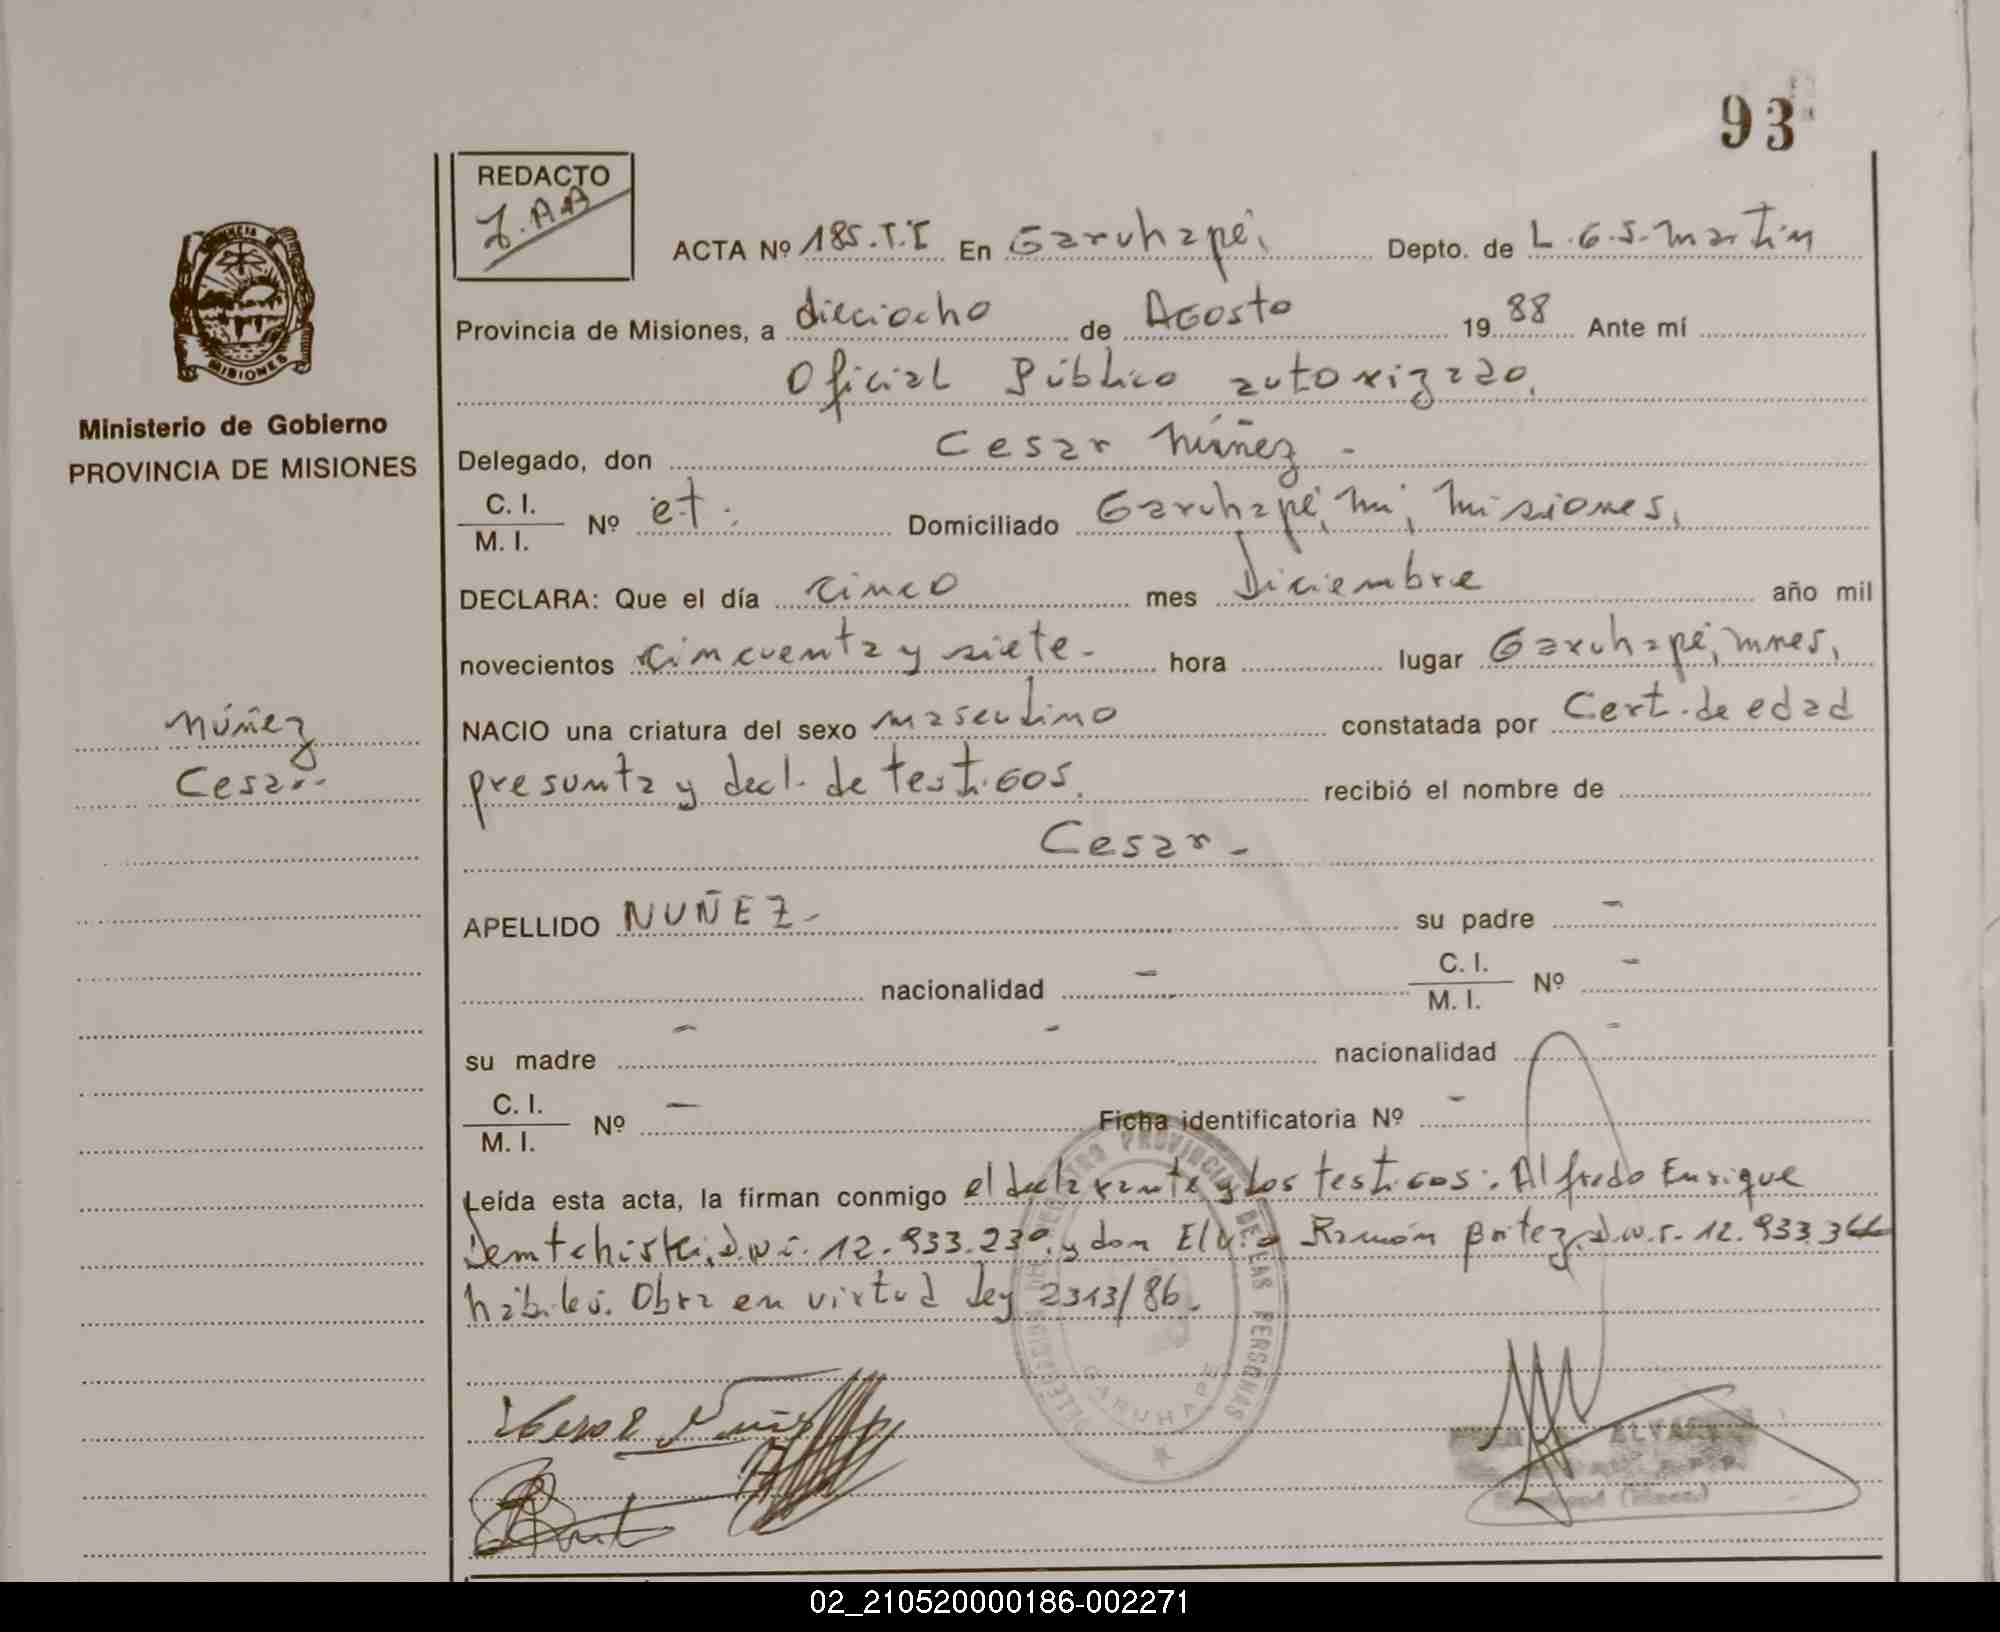 93
REDACTO
Z.AB
ACTA Nº 185.T.I En Garuhapé, Depto. de L.G.S.Martin
Provincia de Misiones, a dieciocho de Agosto 1988 Ante mí
Oficial Público autorizado,
MISIONES
Ministerio de Gobierno
PROVINCIA DE MISIONES
Delegado, don Cesar Núñez -
C. I.
M. I. Nº et. Domiciliado Garuhapé, Mi, Misiones,
DECLARA: Que el día cinco mes Diciembre año mil
novecientos cincuenta y siete- hora lugar Garuhapé, mnes,
Núñez
Cesar.-
NACIO una criatura del sexo masculino constatada por Cert. de edad
presunta y decl. de testigos. recibió el nombre de
Cesar -
APELLIDO NUÑEZ - su padre -
nacionalidad - C. I.
M. I. Nº -
su madre - - nacionalidad -
C. I.
M. I. Nº - Ficha identificatoria Nº -
Leída esta acta, la firman conmigo el declarante y los testigos: Alfredo Enrique
Demtchiski, D.N.i. 12.933.230 y don Elvio Ramón Britez, D.N.I. 12.933.366
hábiles. Obra en virtud Ley 2313/86.
REGISTRO PROVINCIAL DE LAS PERSONAS
GARUHAPE
Cesar Nuñez
02_210520000186-002271